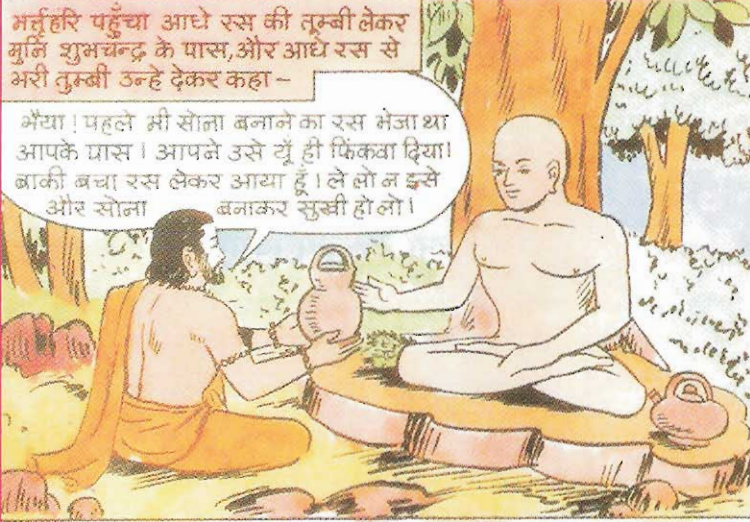 भर्तृहरि पहुँचा आधे रस की तूम्बी लेकर
मुनि शुभचन्द्र के पास,और आधे रस से
भरी तुम्बी उन्हे देकर कहा –
भैया ! पहले भी सोना बनाने का रस भेजा था
आपके पास । आपने उसे यूँ ही फिंकवा दिया।
बाकी बचा रस लेकर आया हूँ । ले लो न इसे
और सोना बनाकर सुखी हो लो ।